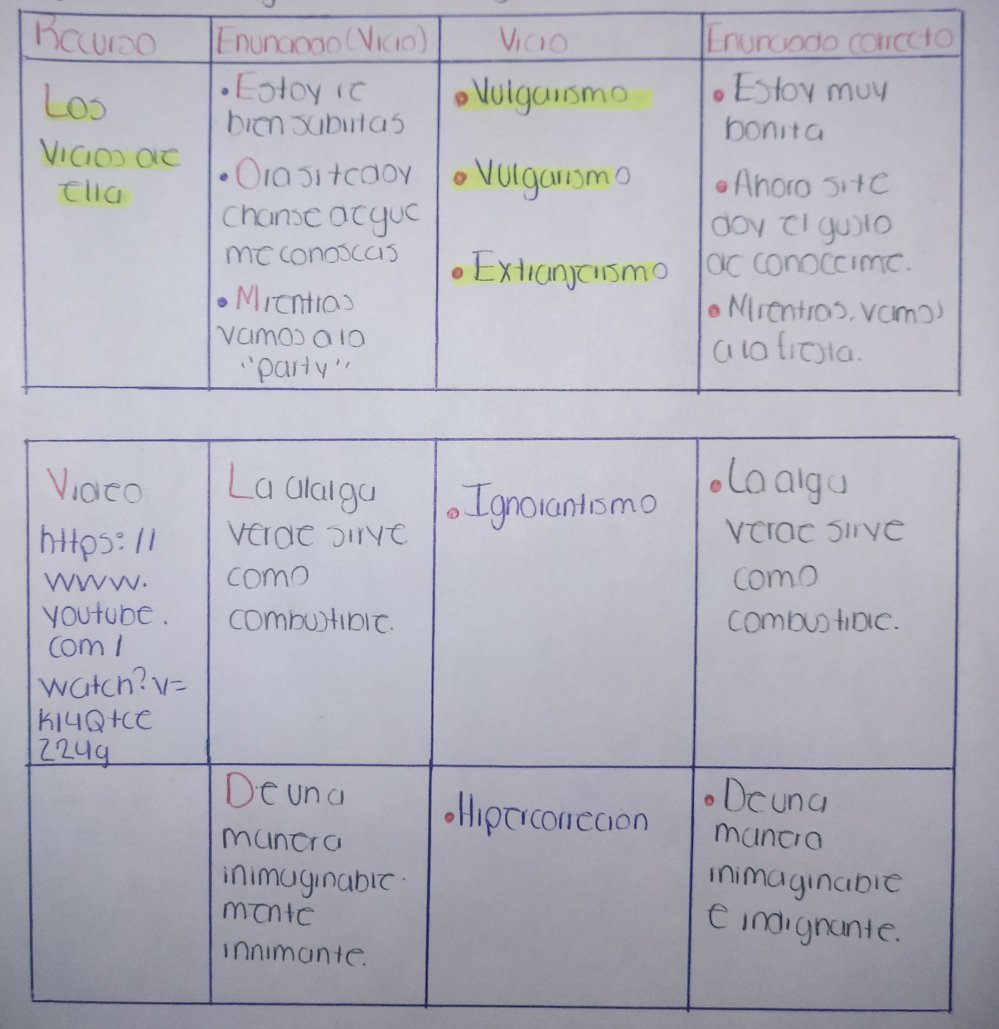 Recurso
Enunciado (Vicio)
Vicio
Enunciado correcto
Los
Vicios de
ella
• Estoy re
bien subirtas
• Ora si te doy
chanse de que
me conoscas
• Mientras
vamos a la
"party"
• Vulgarismo
• Vulgarismo
• Extranjerismo
• Estoy muy
bonita
• Ahora si te
doy el gusto
de conocerme.
• Mientras, vamos
a la fiesta.
Video
https://
www.
youtube.
com/
watch?v=
K14Q+ce
224g
La alalga
verde sirve
como
combustible.
• Ignorantismo
• La alga
verde sirve
como
combustible.
De una
manera
inimaginable.
mente
innimante.
• Hipercorrecion
• De una
manera
inimaginable
e indignante.